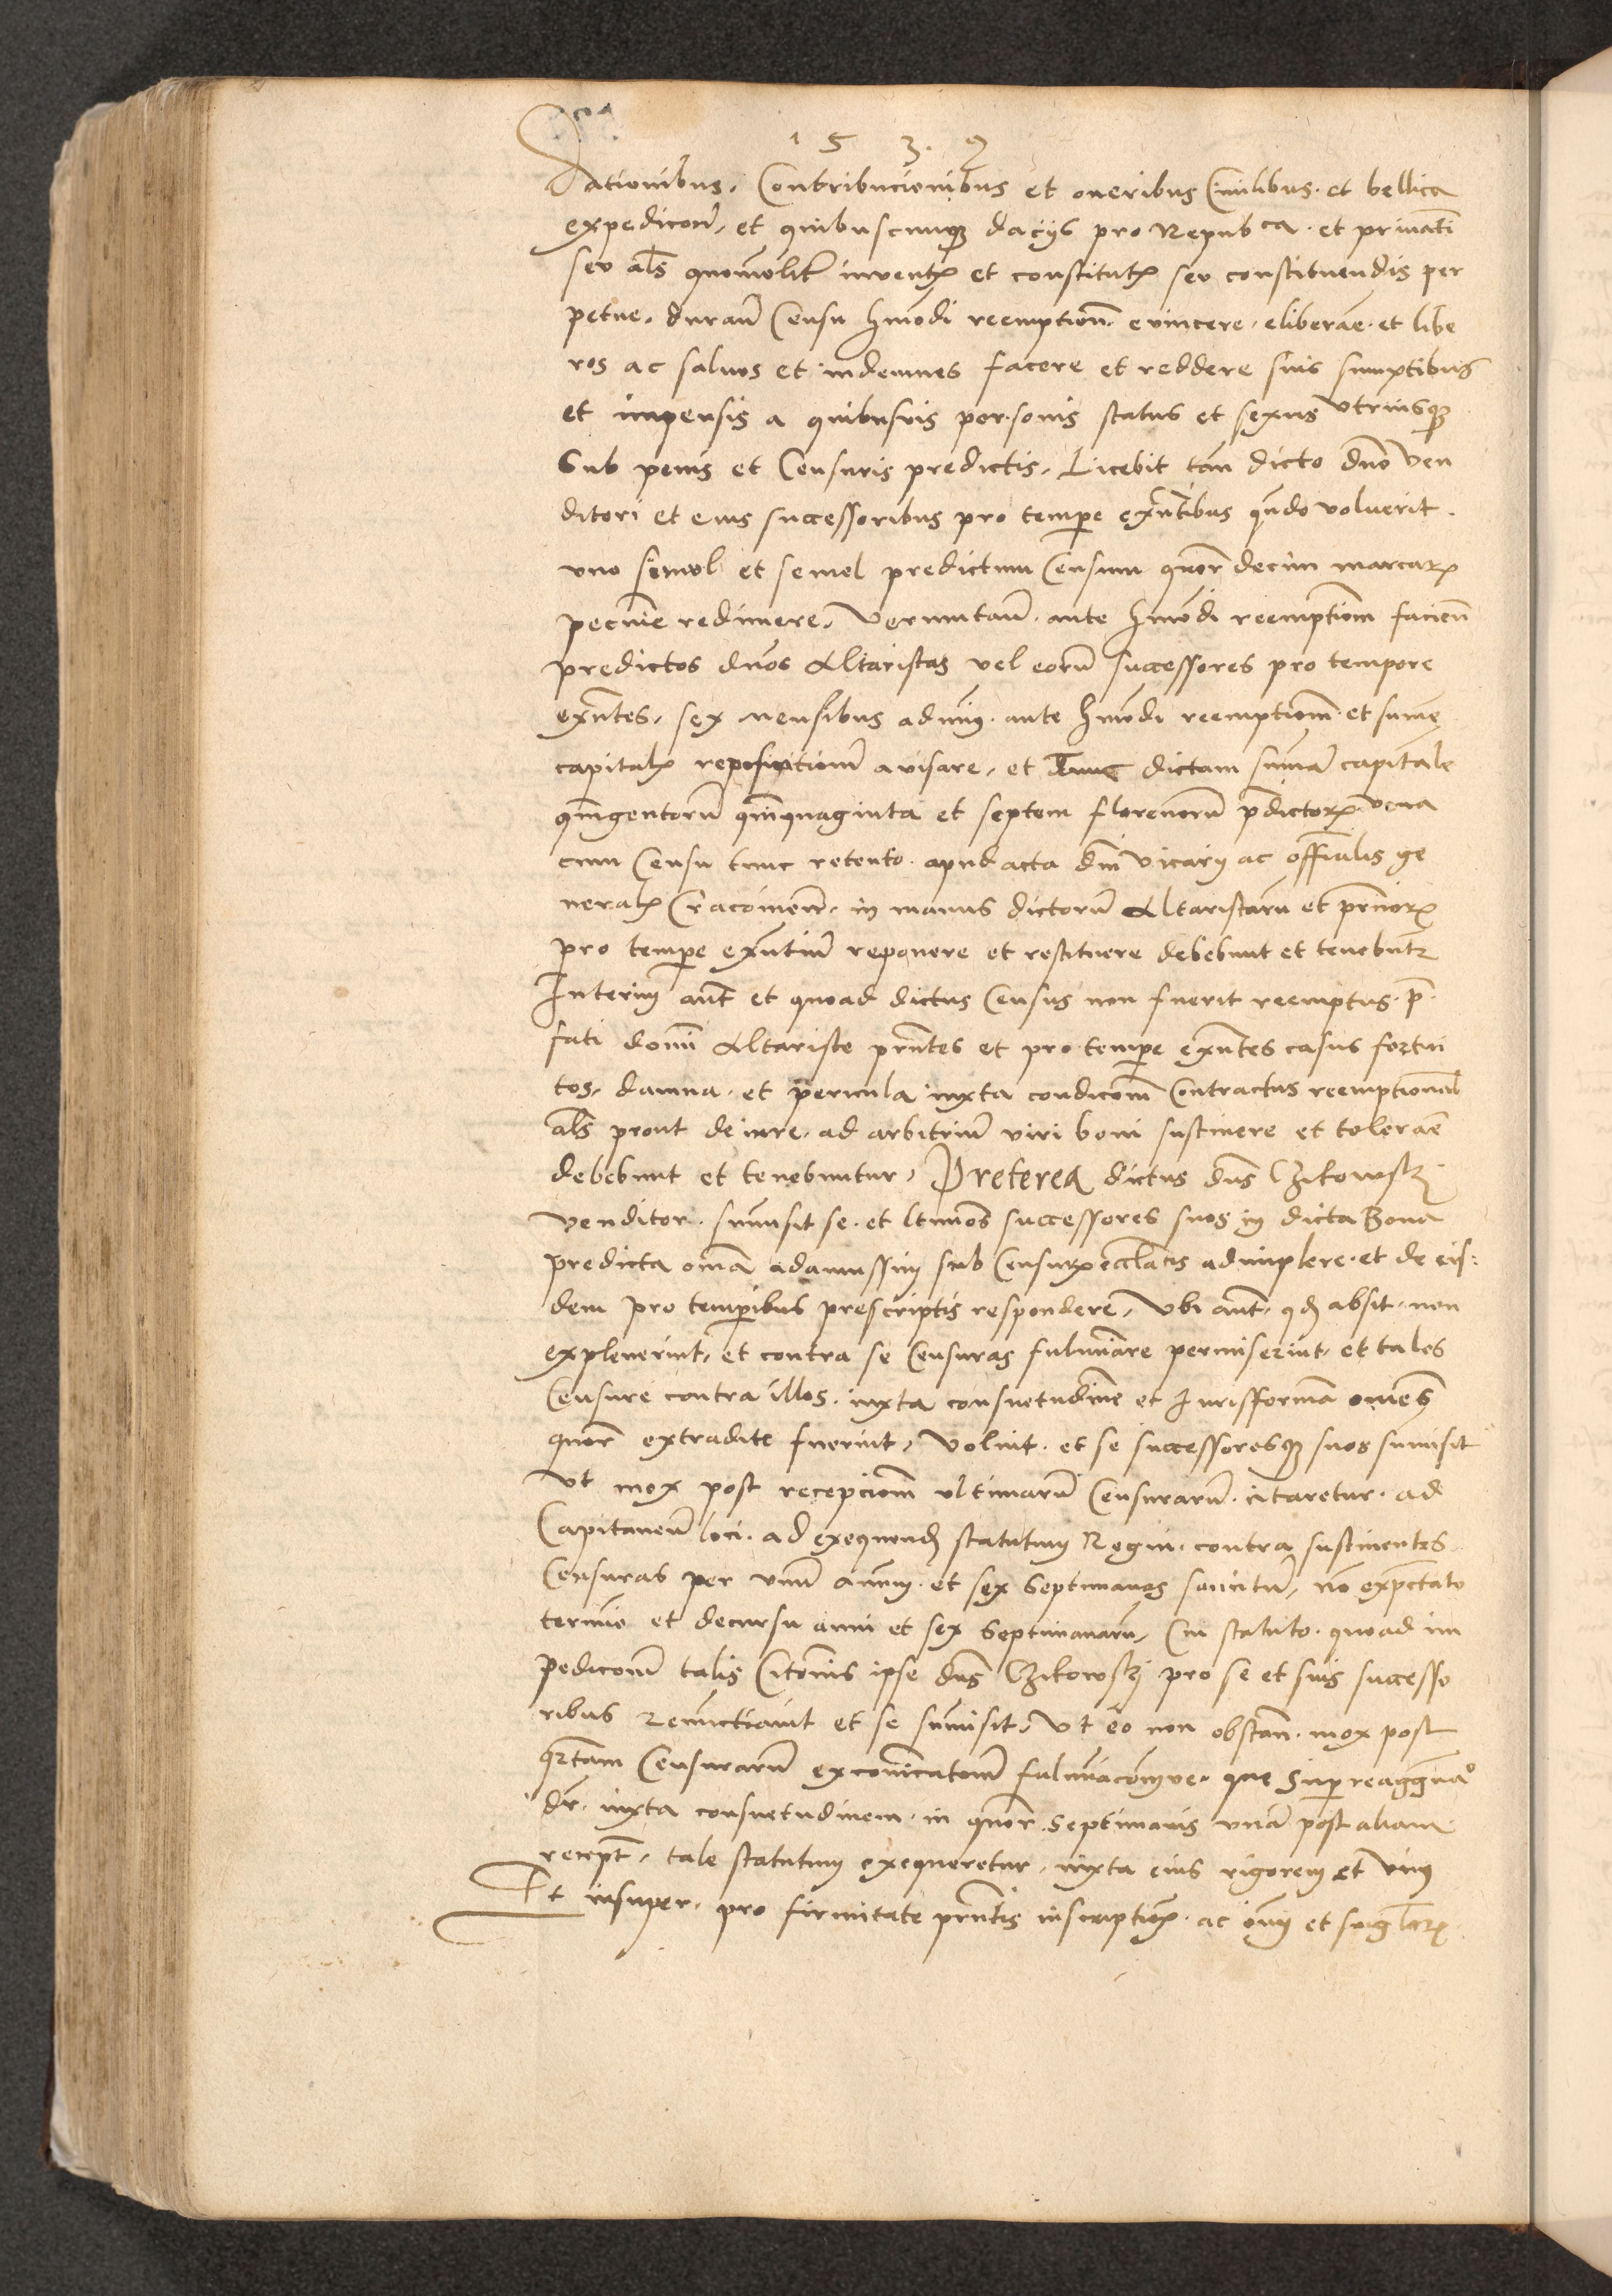 1 5 3. 9
dationibus. Contribucionibus et oneribus Civilibus. et bellica
expedicōn̄. et quibuscunqꝫ dacijs pro Repub ca. et privatī
seu als quomōlit inventꝭ et constitutꝭ seu constituendis per
petue. duran̄ Censu hmōdi reemption̄. evincere. eliberar̄e. et libe
ros ac salvos et indemnes facere et reddere suis sumptibus
et impensis a quibusvis personis status et sexus utriusqꝫ
Sub penis et Censuris predictis. Licebit tam̄ dicto dn̄o Ven
ditori et eius successoribus pro tempe exn̄tibus qn̄do voluerit.
uno simul et semel predictum Censum quor̄ decim marcarꝭ
pecunie redimere. Verumtam̄. ante hmōdi reemptiom̄ facien̄
predictos dn̄os Altaristas vel eorū successores pro tempore
exn̄tes. sex mensibus admin̄. ante hmōdi reemptiom̄. et sume
capitalꝭ repositionem avisare. et tunc dictam sum̄a capitale
quingentorū quinquaginta et septem florenorū pdictorꝭ una
cum Censu tunc retento. apud acta dn̄i Vicarij ac offialis ge
neralꝭ Cracovien̄. in manus dictorū Altaristarū et prn̄iorꝭ
pro tempe exn̄tium reponere et restituere debebunt et tenebuntꝛ
Interim aut̄ et quoad dictus Census non fuerit reemptus. p̄
fati domi Altariste prn̄tes et pro tempe exn̄tes casus fortui
tos. damna. et pericula iuxta condiciom̄ Contractus reemptional
als prout de iure. ad arbitrium viri boni sustinere et tolerar̄e
debebunt et tenebuntur. Preterea dictus dn̄s Czikowskj
venditor. sumisit se. et ltimos successores suos in dicta Bona
predicta om̄ia adamussim sub Censurꝭ ecclāticis adimplere. et de eis:
dem pro tempibus prescriptis respondere. Ubi aut̄. qđ absit. non
expleverint. et contra se Censuras fulminare permiserint. et tales
Censure contra illos. iuxta consuetudine et Juris formā om̄es
quor̄ extradite fuerint. Voluit. et se successoresqꝫ suos sumisit
Ut mox post recepciom̄ ultimarū Censurarū. citaretur. ad
Capitaneū loci. ad exequend̄ statutum Regni. contra sustinentes
Censuras per unū annum. et sex Septimanas sancitū. nō expectato
termino et decursu anni et sex Septimanarū. Cui statuto. quoad im
pediciom̄ talis Citōnis ipse dn̄s Czikowskj pro se et suis successo
ribus renuntiavit et se sumisit. Ut eo non obstan̄. mox post
qrtam Censurarū excōicatom̄ fulminacōnemve. que Super reaggrava
dr̄. iuxta consuetudinem. in quor̄. Septimanis una post aliam
recept̄. tale statutum exequeretur. iuxta eius rigorem et vim
Et insuper. pro firmitate prn̄tis inscriptiōꝭ. ac om̄i et singlarꝭ